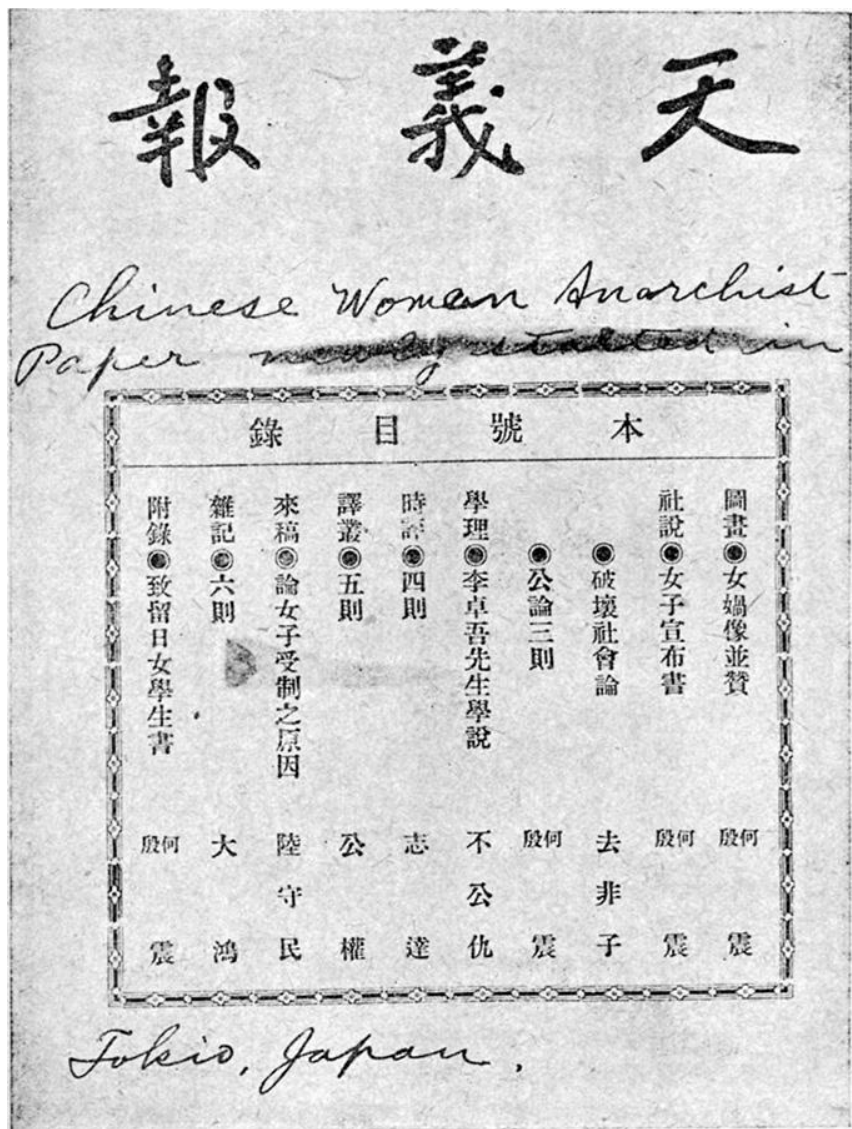 天義報
Chinese Woman Anarchist
Paper newly started in
本號目錄
圖畫◉女媧像並贊 何殷震
社說◉女子宣布書 何殷震
◉破壞社會論 去非子
◉公論三則 何殷震
學理◉李卓吾先生學說 不公仇
時評◉四則 志達
譯叢◉五則 公權
來稿◉論女子受制之原因 陸守民
雜記◉六則 大鴻
附錄◉致留日女學生書 何殷震
Tokio, Japan.